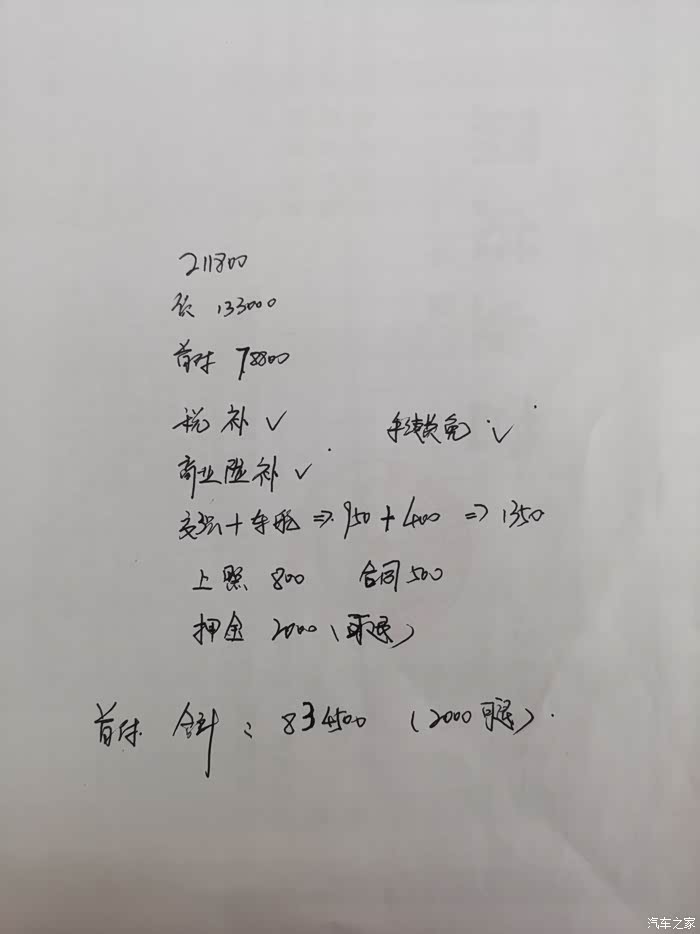 211800
贷 133000
首付 78800
税 补 ✓ 手续费免 ✓
商业险补 ✓
交强+车船 => 950+400 => 1350
上照 800 合同 500
押金 2000(可退)
首付 合计: 834500 (2000可退).
汽车之家